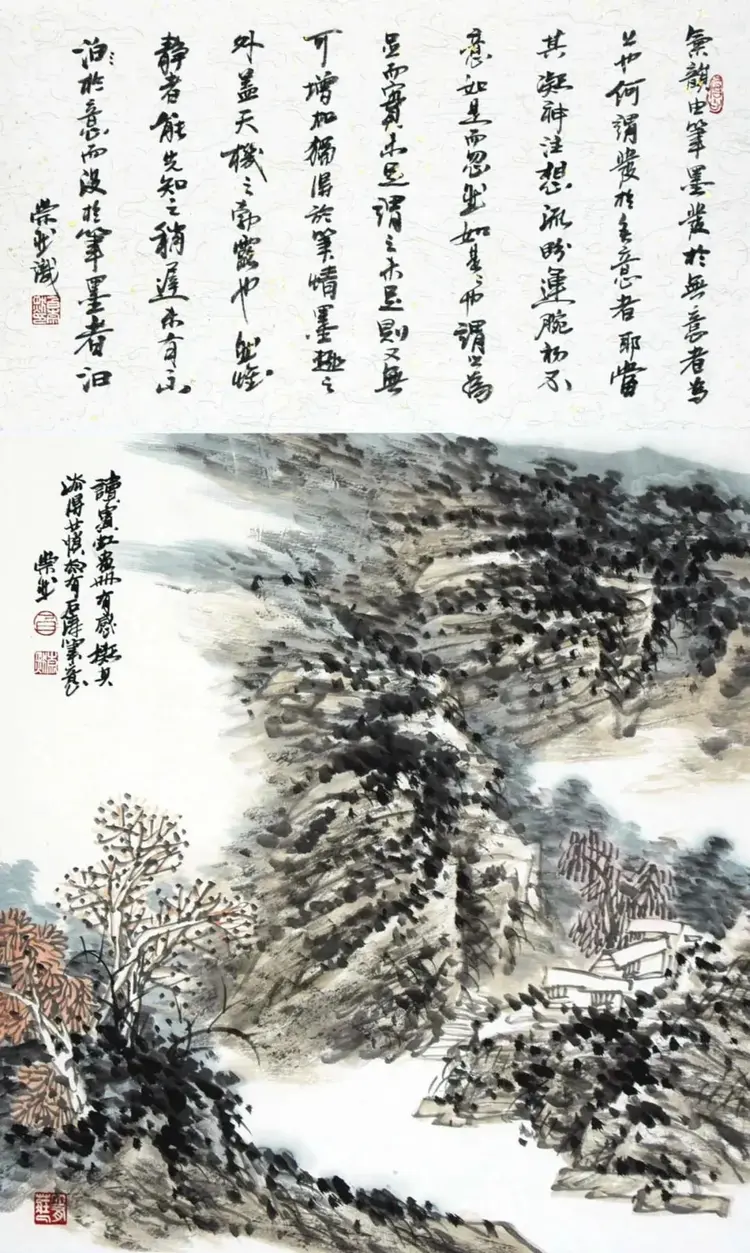 氣韻由筆墨發於無意者為
上也何謂發於無意者耶當
其凝神注想流盼運腕初不
意如是而忽然如是々也謂之為
足而實未足謂之未足則又無
可增加獨得於筆情墨趣之
外蓋天機之勃露也然惟
靜者能先知之稍遲未有不
汩々於意而沒於筆墨者汩
識
讀賓虹畫冊有感擬其
有石濤筆意